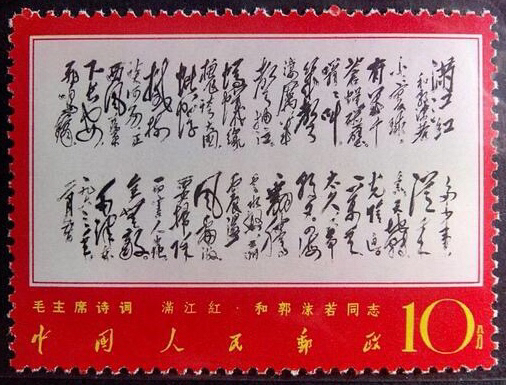 满江红
和郭沫若
小小寰球
有几个
苍蝇碰壁
嗡嗡叫
几声
凄厉几
声抽泣
蚂蚁缘
槐夸大国
蚍蜉
撼树
谈何易正
西风落叶
下长安
飞鸣镝
多少事
从来急
天地转
光阴迫
一万年
太久只争
朝夕四海
翻腾
云水怒五洲
震荡
风雷激
要扫除
一切害人虫
全无敌
毛泽东
毛主席诗词 满江红·和郭沫若同志
中国人民邮政 10分